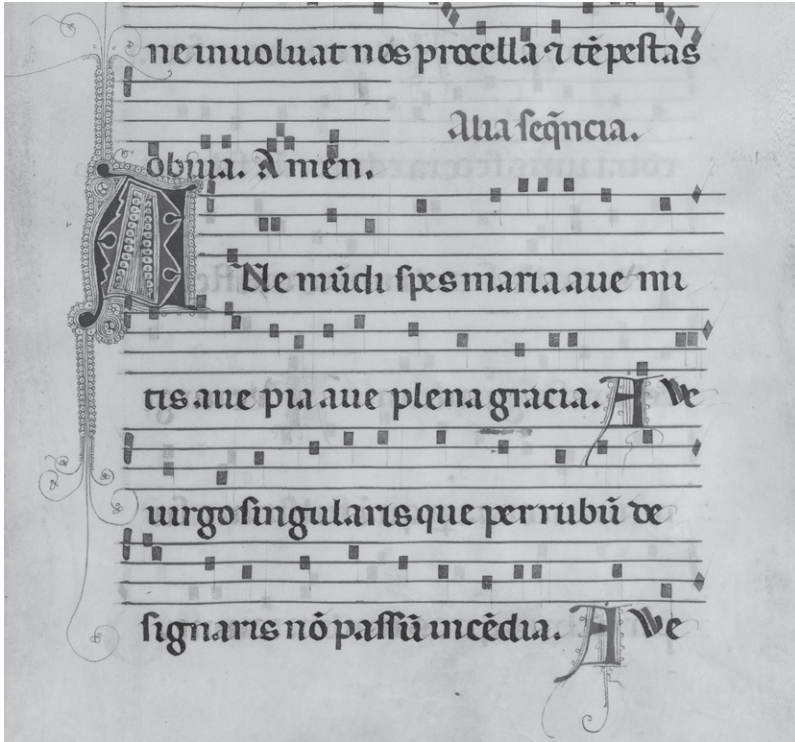 ne inuoluat nos procella ⁊ tēpestas
Alia seq̄ncia.
obuia. Amen.
Ne mūdi spes maria aue mi
tis aue pia aue plena gracia. A ve
uirgo singularis que per rubū de
signaris nō passū incēdia. A ve